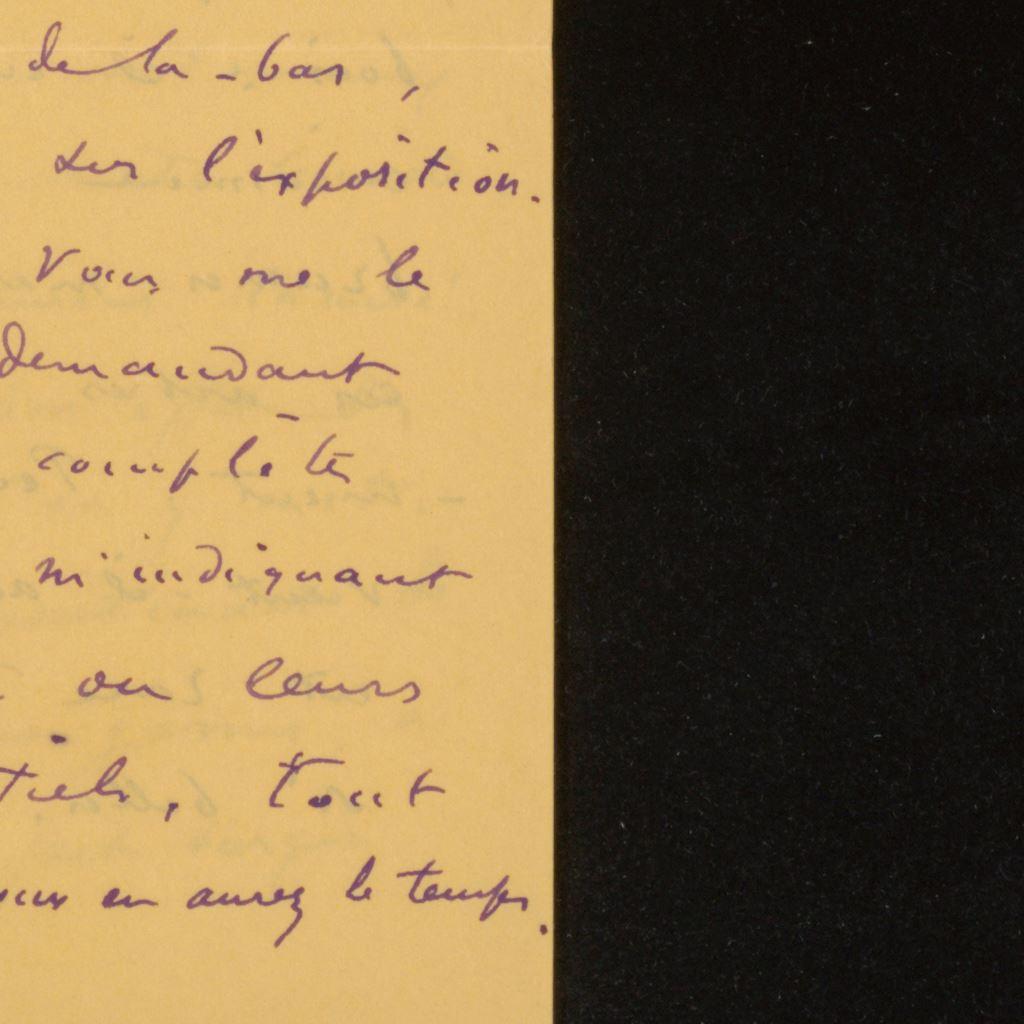 de la-bas,
sur l'exposition.
Vous me le
demandant
complète
m'indiquant
ou leurs
tiels, tout
vous en aurez le temps.